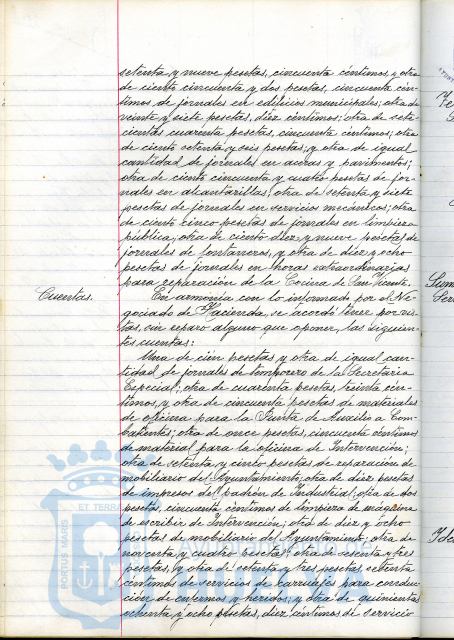 setenta y nueve pesetas, cincuenta céntimos, y otra
de ciento cincuenta y dos pesetas, cincuenta cén-
timos de jornales en edificios municipales; otra de
veinte y siete pesetas, diez céntimos; otra de sete-
cientas cuarenta pesetas, cincuenta céntimos; otra
de ciento setenta y seis pesetas; y otra de igual
cantidad de jornales en aceras y pavimentos;
otra de ciento cincuenta y cuatro pesetas de jor-
nales en alcantarillas; otra de setenta y siete
pesetas de jornales en servicios mecánicos; otra
de ciento cinco pesetas de jornales en limpieza
pública; otra de ciento diez y nueve pesetas de
jornales de fontaneros, y otra de diez y ocho
pesetas de jornales en horas extraordinarias
para reparación de la Cocina de San Vicente.
Cuentas. En armonía con lo informado por el Ne-
gociado de Hacienda, se acordó tener por vis-
tas, sin reparo alguno que oponer, las siguien-
tes cuentas:
Una de cien pesetas y otra de igual can-
tidad de jornales de temporero de la Secretaría
Especial; otra de cuarenta pesetas, treinta cén-
timos, y otra de cincuenta pesetas de materiales
de oficina para la Junta de Auxilio a Com-
batientes; otra de once pesetas, cincuenta céntimos
de material para la oficina de Intervención;
otra de setenta y cinco pesetas de reparación de
mobiliario del Ayuntamiento; otra de diez pesetas
de impresos del padrón de Industrial; otra de dos
pesetas, cincuenta céntimos de limpieza de máquina
de escribir de Intervención; otra de diez y ocho
pesetas de mobiliario del Ayuntamiento; otra de
noventa y cuatro pesetas; otra de sesenta y tres
pesetas, y otra de setenta y tres pesetas, setenta
céntimos de servicios de carruajes para conduc-
ción de enfermos y heridos; y otra de quinientas
ochenta y ocho pesetas, diez céntimos de servicio
PORTUS MARIS ET TERRA